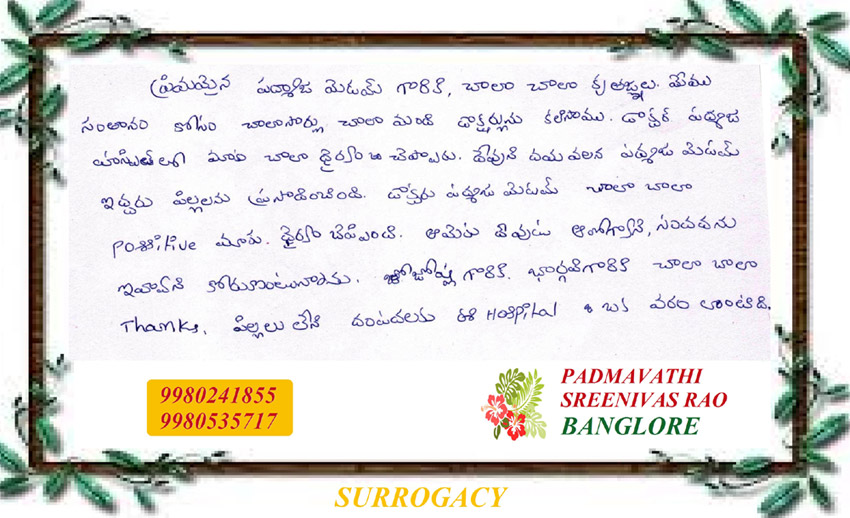 ప్రియమైన పద్మాజ మెడమ్ గారికి, చాలా చాలా కృతజ్ఞలు. మేము
సంతానం కోసం చాలాసార్లు చాలా మంది డాక్టర్లును కలిసాము. డాక్టర్ పద్మజ
హాస్పిటల్లో మాకు చాలా ధైర్యం చెప్పారు. దేవుని దయ వలన పద్మజ మెడమ్
ఇద్దరు పిల్లలను ప్రసాదించింది. డాక్టరు పద్మజ మెడమ్ చాలా చాలా
Possitive మాకు. ధైర్యం చెపింది. ఆమెకు దేవుడు ఆరోగ్యాని, సంపదను
ఇవ్వాని కోరుకుంటున్నాము. గారికి. భార్గవిగారికి చాలా చాలా
Thanks, పిల్లలు లేని దంపదలకు ఈ Hospital ఒక వరం లాంటిది.
9980241855
9980535717
PADMAVATHI
SREENIVAS RAO
BANGLORE
SURROGACY